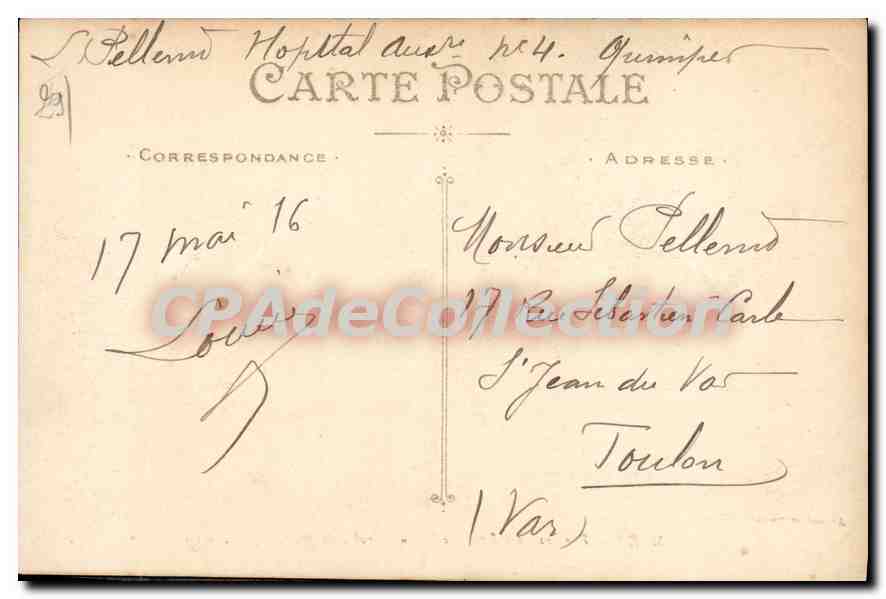 L Pellerin Hopital Auxre no 4. Quimper
29
CARTE POSTALE
· CORRESPONDANCE ·
· ADRESSE ·
17 mai 16
Louise
Monsieur Pellerin
17 Rue Sébastien-Carle
St Jean du Var
Toulon
(Var)
CPAdeCollection